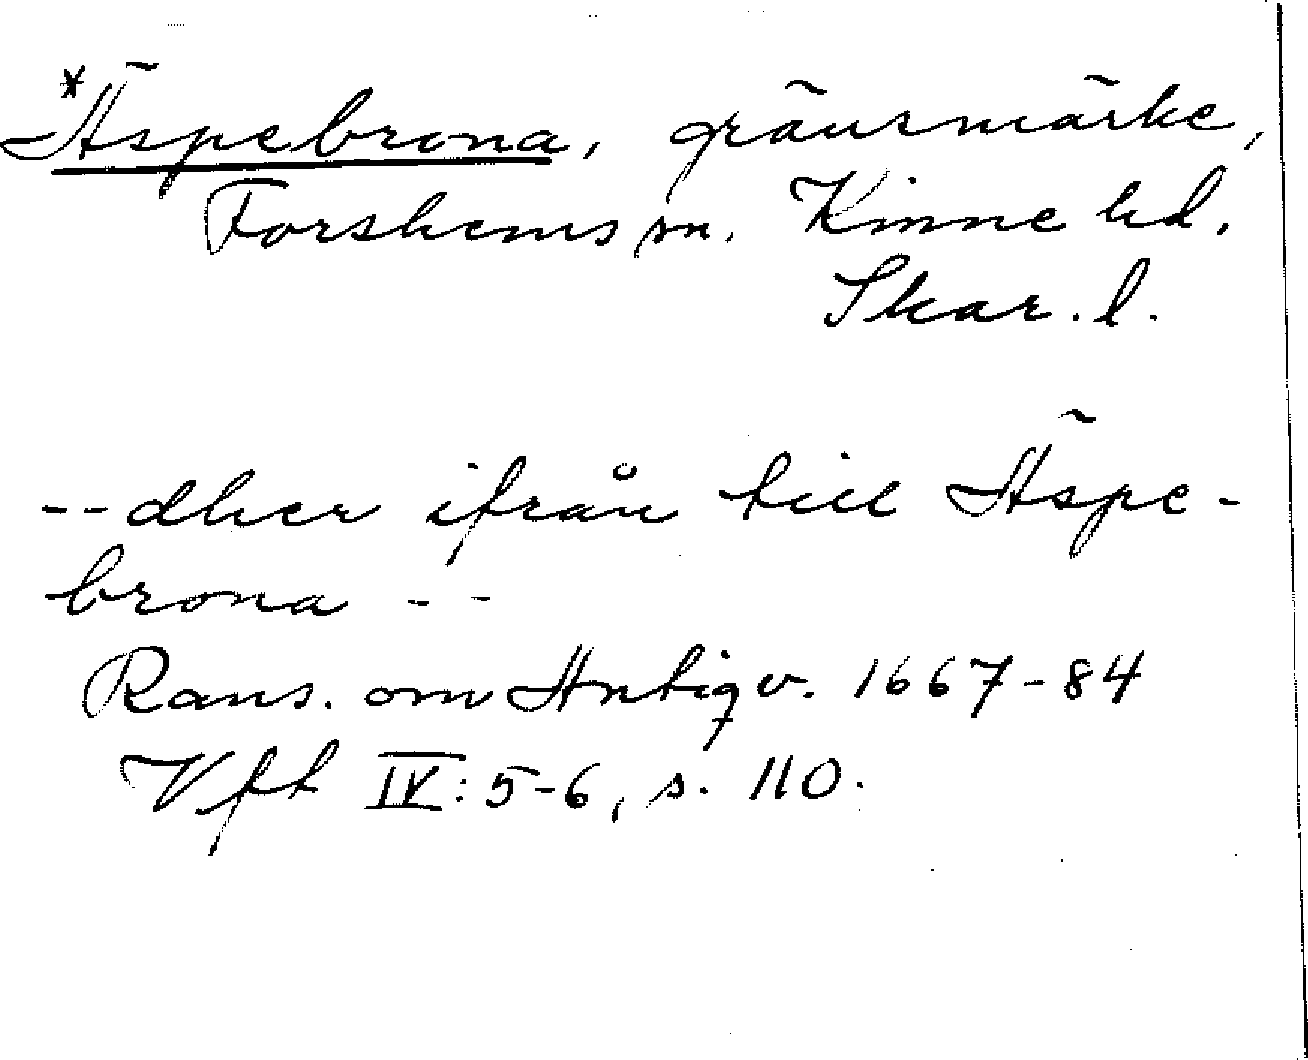 *Äspebrona, gränsmärke,
Forshems sn. Kinne hd.
Skar. l.
--dher ifrån till Äspe-
brona --
Rans. om Antiqv. 1667-84
Vft IV: 5-6, s. 110.